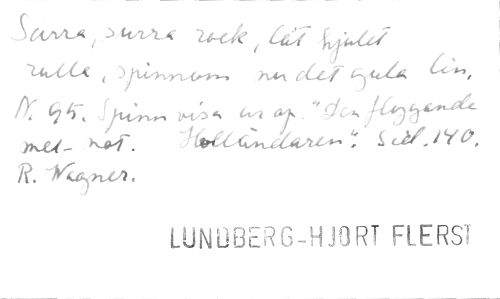 Surra, surra rock, låt hjulet
rulla, spinnom nu det gula lin.
N. 95. Spinnvisa ur op. "Den flygande
med not. Holländaren". Sid. 140.
R. Wagner.
LUNDBERG-HJORT FLERST